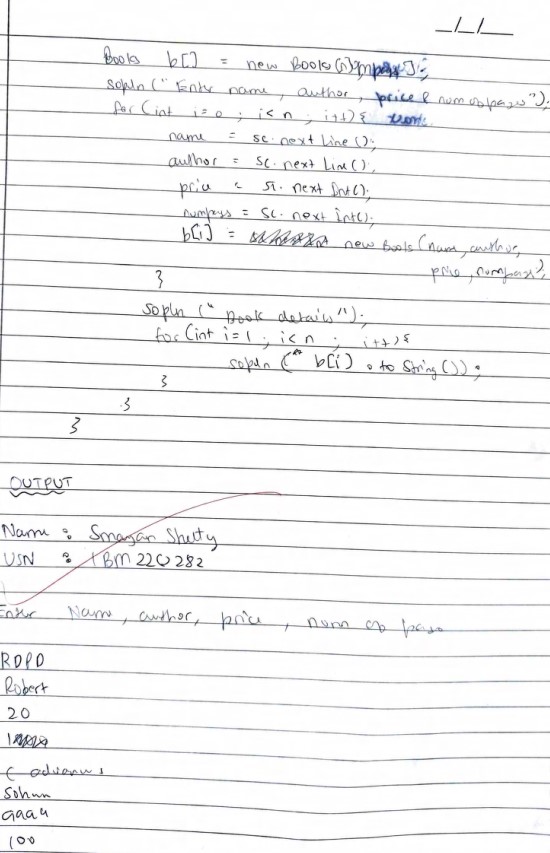 Books b[] = new Books[n];
sopln ("Enter name, author, price & num of pages");
for (int i = 0 ; i < n ; i++) {
name = sc.nextLine();
author = sc.nextLine();
price = sc.nextInt();
numpages = sc.nextInt();
b[i] = new Books (name, author,
price, numpages);
}
sopln (" Book details");
for (int i = 1 ; i < n ; i++) {
sopln (" b[i] . to String ());
}
}
}
OUTPUT
Name : Smayan Shetty
USN :
Enter Name, author, price, num of pages
RDPD
Robert
20
C
Sohan
100